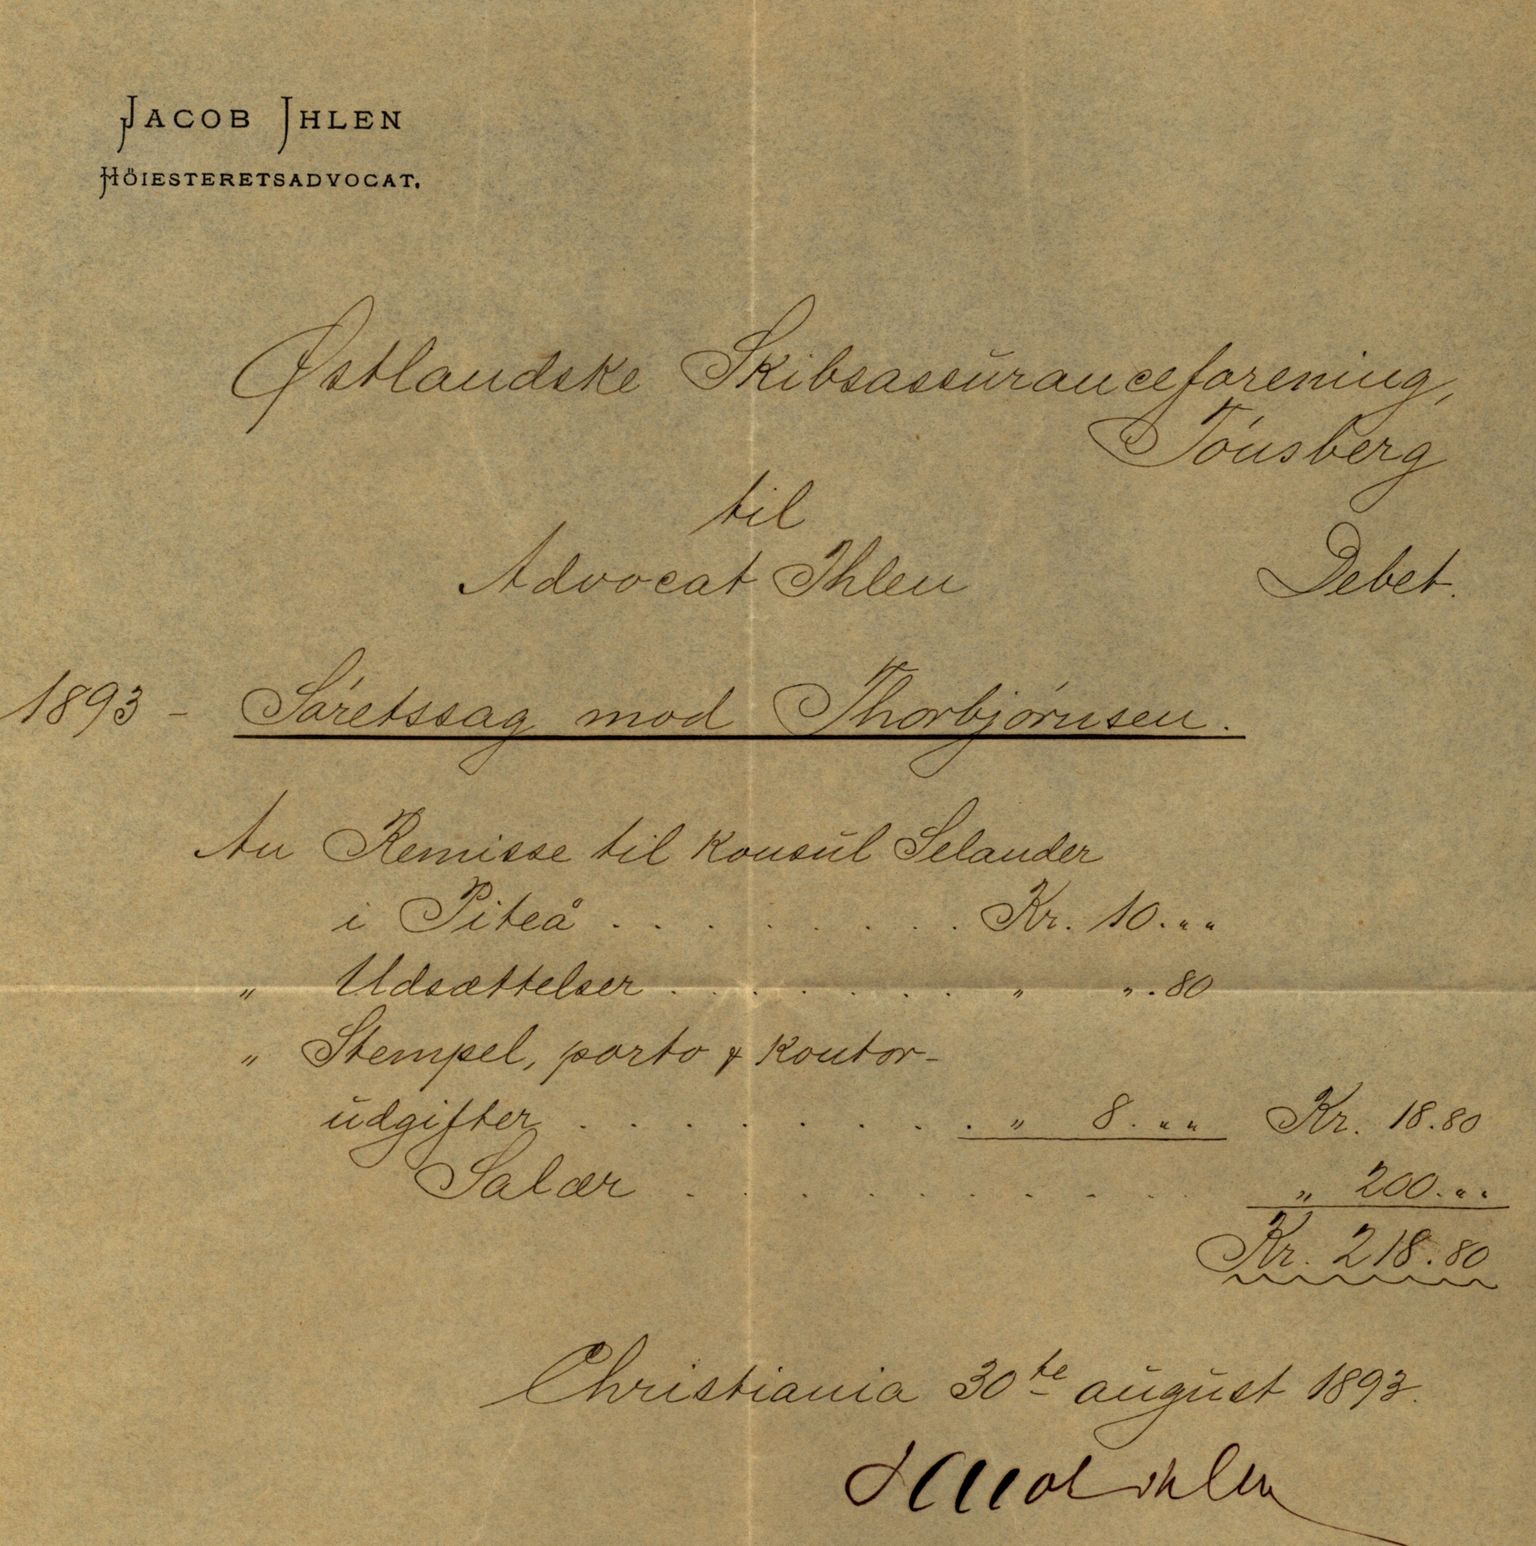 JACOB IHLEN
HÖIESTERETSADVOCAT.
Østlandske Skibsassuranceforening,
Tónsberg
til
Advocat Ihlen Debet.
1893 - Sóretssag mod Thorbjórnsen.
An Remisse til Konsul Selander
i Piteå . . . . . . . . Kr. 10. " "
" Udsættelser . . . . . . . " " . 80
" Stempel, porto & Kontor-
udgifter . . . . . . . . . " 8. " " Kr. 18.80
Salær . . . . . . . . . " 200. " "
Kr. 218.80
Christiania 30te august 1893.
Jacob Ihlen